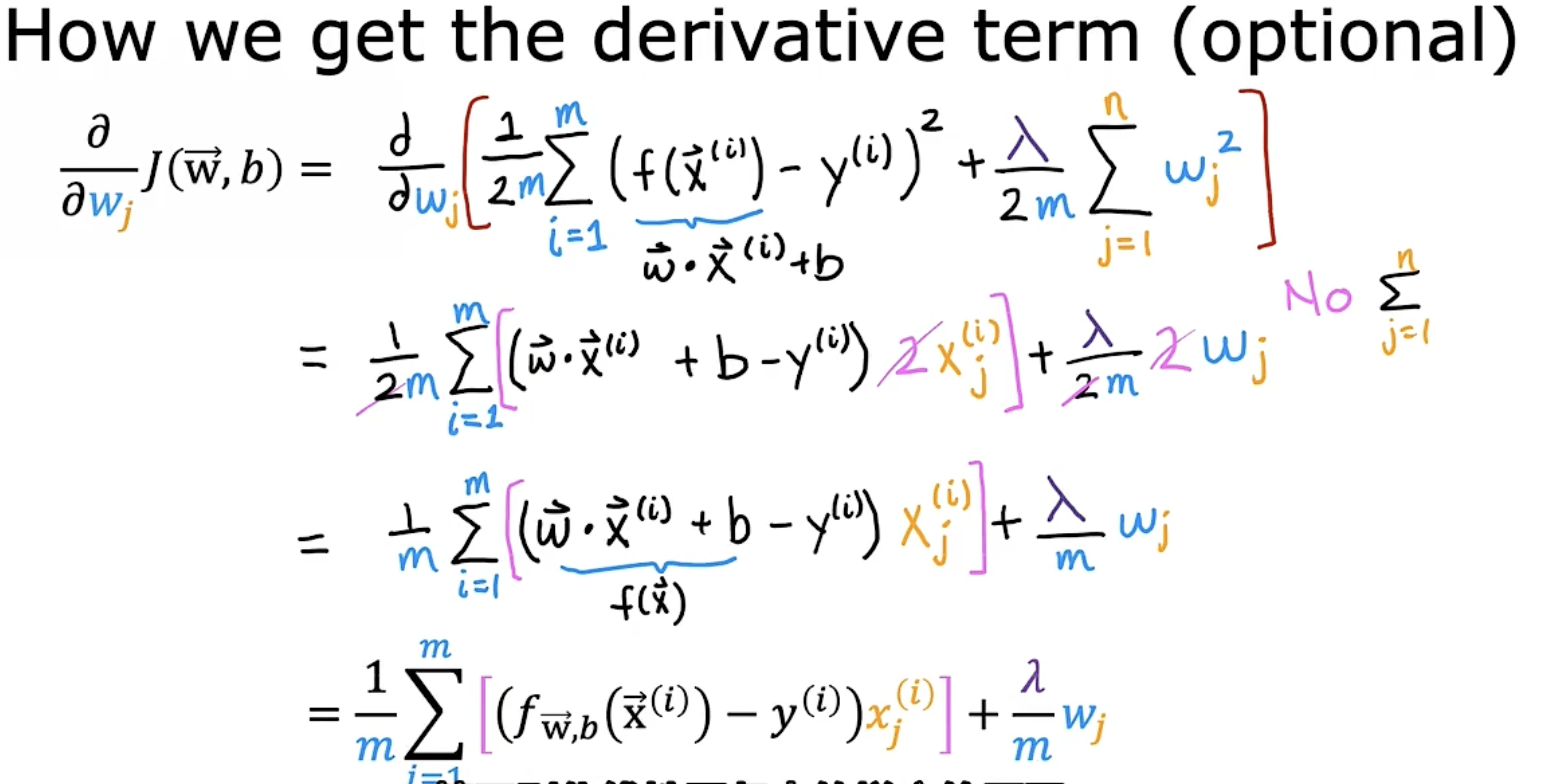 How we get the derivative term (optional)
∂/∂w_j J(w⃗, b) = ∂/∂w_j [ 1/2m Σ_{i=1}^{m} (f(x⃗^(i)) - y^(i))^2 + λ/2m Σ_{j=1}^{n} w_j^2 ]
w⃗ · x⃗^(i) + b
No Σ_{j=1}^{n}
= 1/2m Σ_{i=1}^{m} [ (w⃗ · x⃗^(i) + b - y^(i)) 2 x_j^(i) ] + λ/2m 2 w_j
= 1/m Σ_{i=1}^{m} [ (w⃗ · x⃗^(i) + b - y^(i)) x_j^(i) ] + λ/m w_j
f(x⃗)
= 1/m Σ_{i=1}^{m} [ (f_{w⃗,b}(x⃗^(i)) − y^(i)) x_j^(i) ] + λ/m w_j